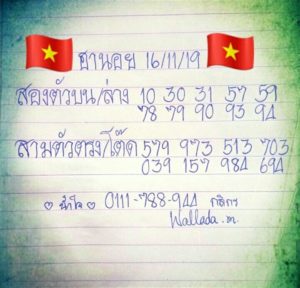 ฮานอย 16/11/19
สองตัวบน/ล่าง 10 30 31 57 59
78 79 90 93 94
สามตัวตรง/โต๊ด 579 973 513 703
039 157 984 694
♡ น้ำใจ ♡ 0111-788-944 กสิกร
Wallada.m.